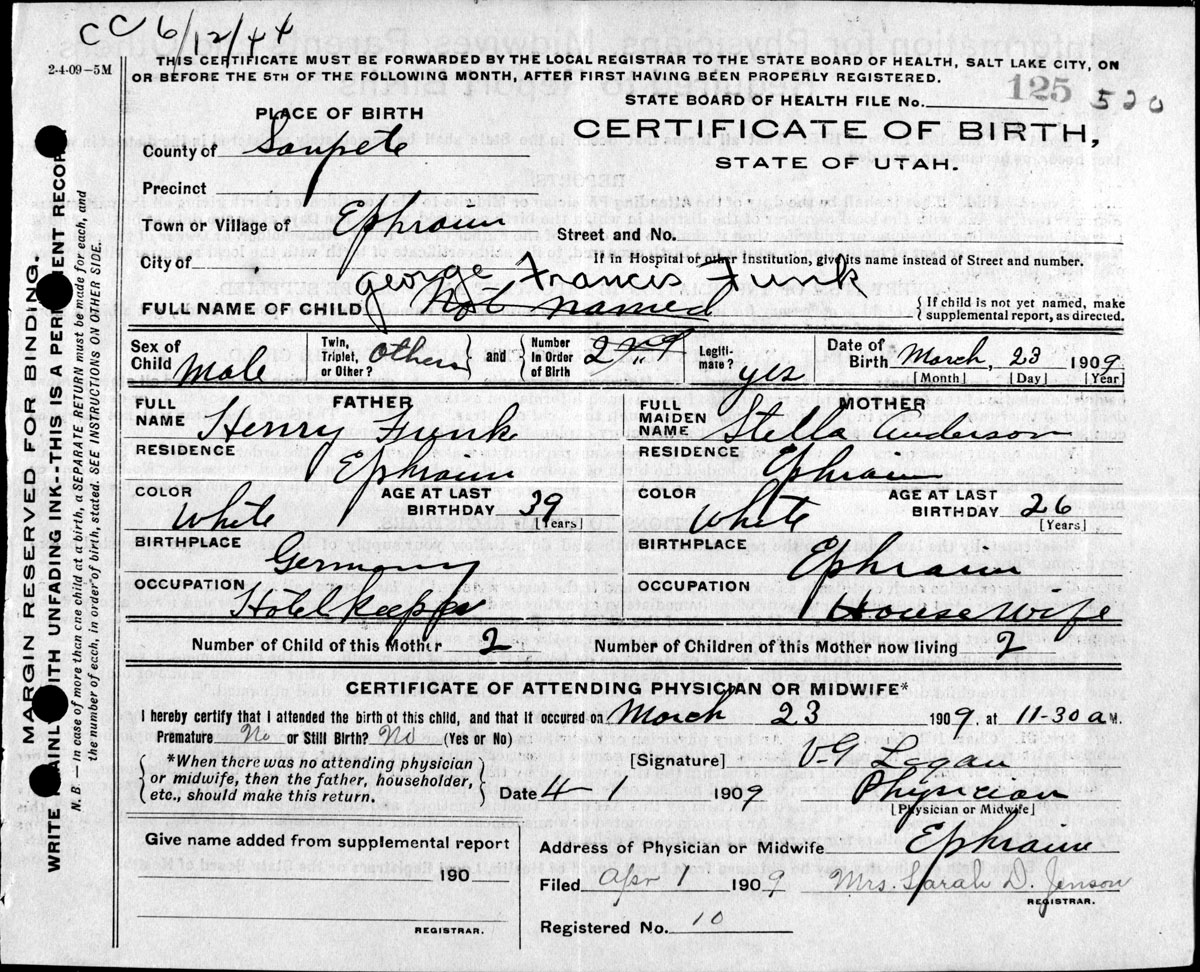 CC 6/12/44
2-4-09-5M
THIS CERTIFICATE MUST BE FORWARDED BY THE LOCAL REGISTRAR TO THE STATE BOARD OF HEALTH, SALT LAKE CITY, ON
OR BEFORE THE 5TH OF THE FOLLOWING MONTH, AFTER FIRST HAVING BEEN PROPERLY REGISTERED.
STATE BOARD OF HEALTH FILE No. 125 520
PLACE OF BIRTH
CERTIFICATE OF BIRTH,
STATE OF UTAH.
County of Sanpete
Precinct
Town or Village of Ephraim
Street and No.
City of
If in Hospital or other Institution, give its name instead of Street and number.
George Francis Funk
FULL NAME OF CHILD Not named
{ If child is not yet named, make
supplemental report, as directed.
Sex of Child Male
Twin, Triplet, or Other? Other } and { Number in Order of Birth 2
Legiti-mate? yes
Date of Birth March, 23 1909
[Month] [Day] [Year]
FATHER
FULL NAME Henry Funk
RESIDENCE Ephraim
COLOR White
AGE AT LAST BIRTHDAY 39
[Years]
BIRTHPLACE Germany
OCCUPATION Hotel keeper
MOTHER
FULL MAIDEN NAME Stella Anderson
RESIDENCE Ephraim
COLOR White
AGE AT LAST BIRTHDAY 26
[Years]
BIRTHPLACE Ephraim
OCCUPATION House wife
Number of Child of this Mother 2 Number of Children of this Mother now living 2
CERTIFICATE OF ATTENDING PHYSICIAN OR MIDWIFE*
I hereby certify that I attended the birth of this child, and that it occured on March 23 1909, at 11-30 a M.
Premature No or Still Birth? No (Yes or No)
*When there was no attending physician
or midwife, then the father, householder,
etc., should make this return.
[Signature] V-G Logan
Date 4 1 1909 Physician
[Physician or Midwife]
Give name added from supplemental report
190
REGISTRAR.
Address of Physician or Midwife Ephraim
Filed Apr 1 1909 Mrs. Sarah D. Jenson
REGISTRAR.
Registered No. 10
MARGIN RESERVED FOR BINDING.
WRITE PLAINLY WITH UNFADING INK--THIS IS A PERMANENT RECORD.
N. B.—In case of more than one child at a birth, a SEPARATE RETURN must be made for each, and
the number of each, in order of birth, stated. SEE INSTRUCTIONS ON OTHER SIDE.